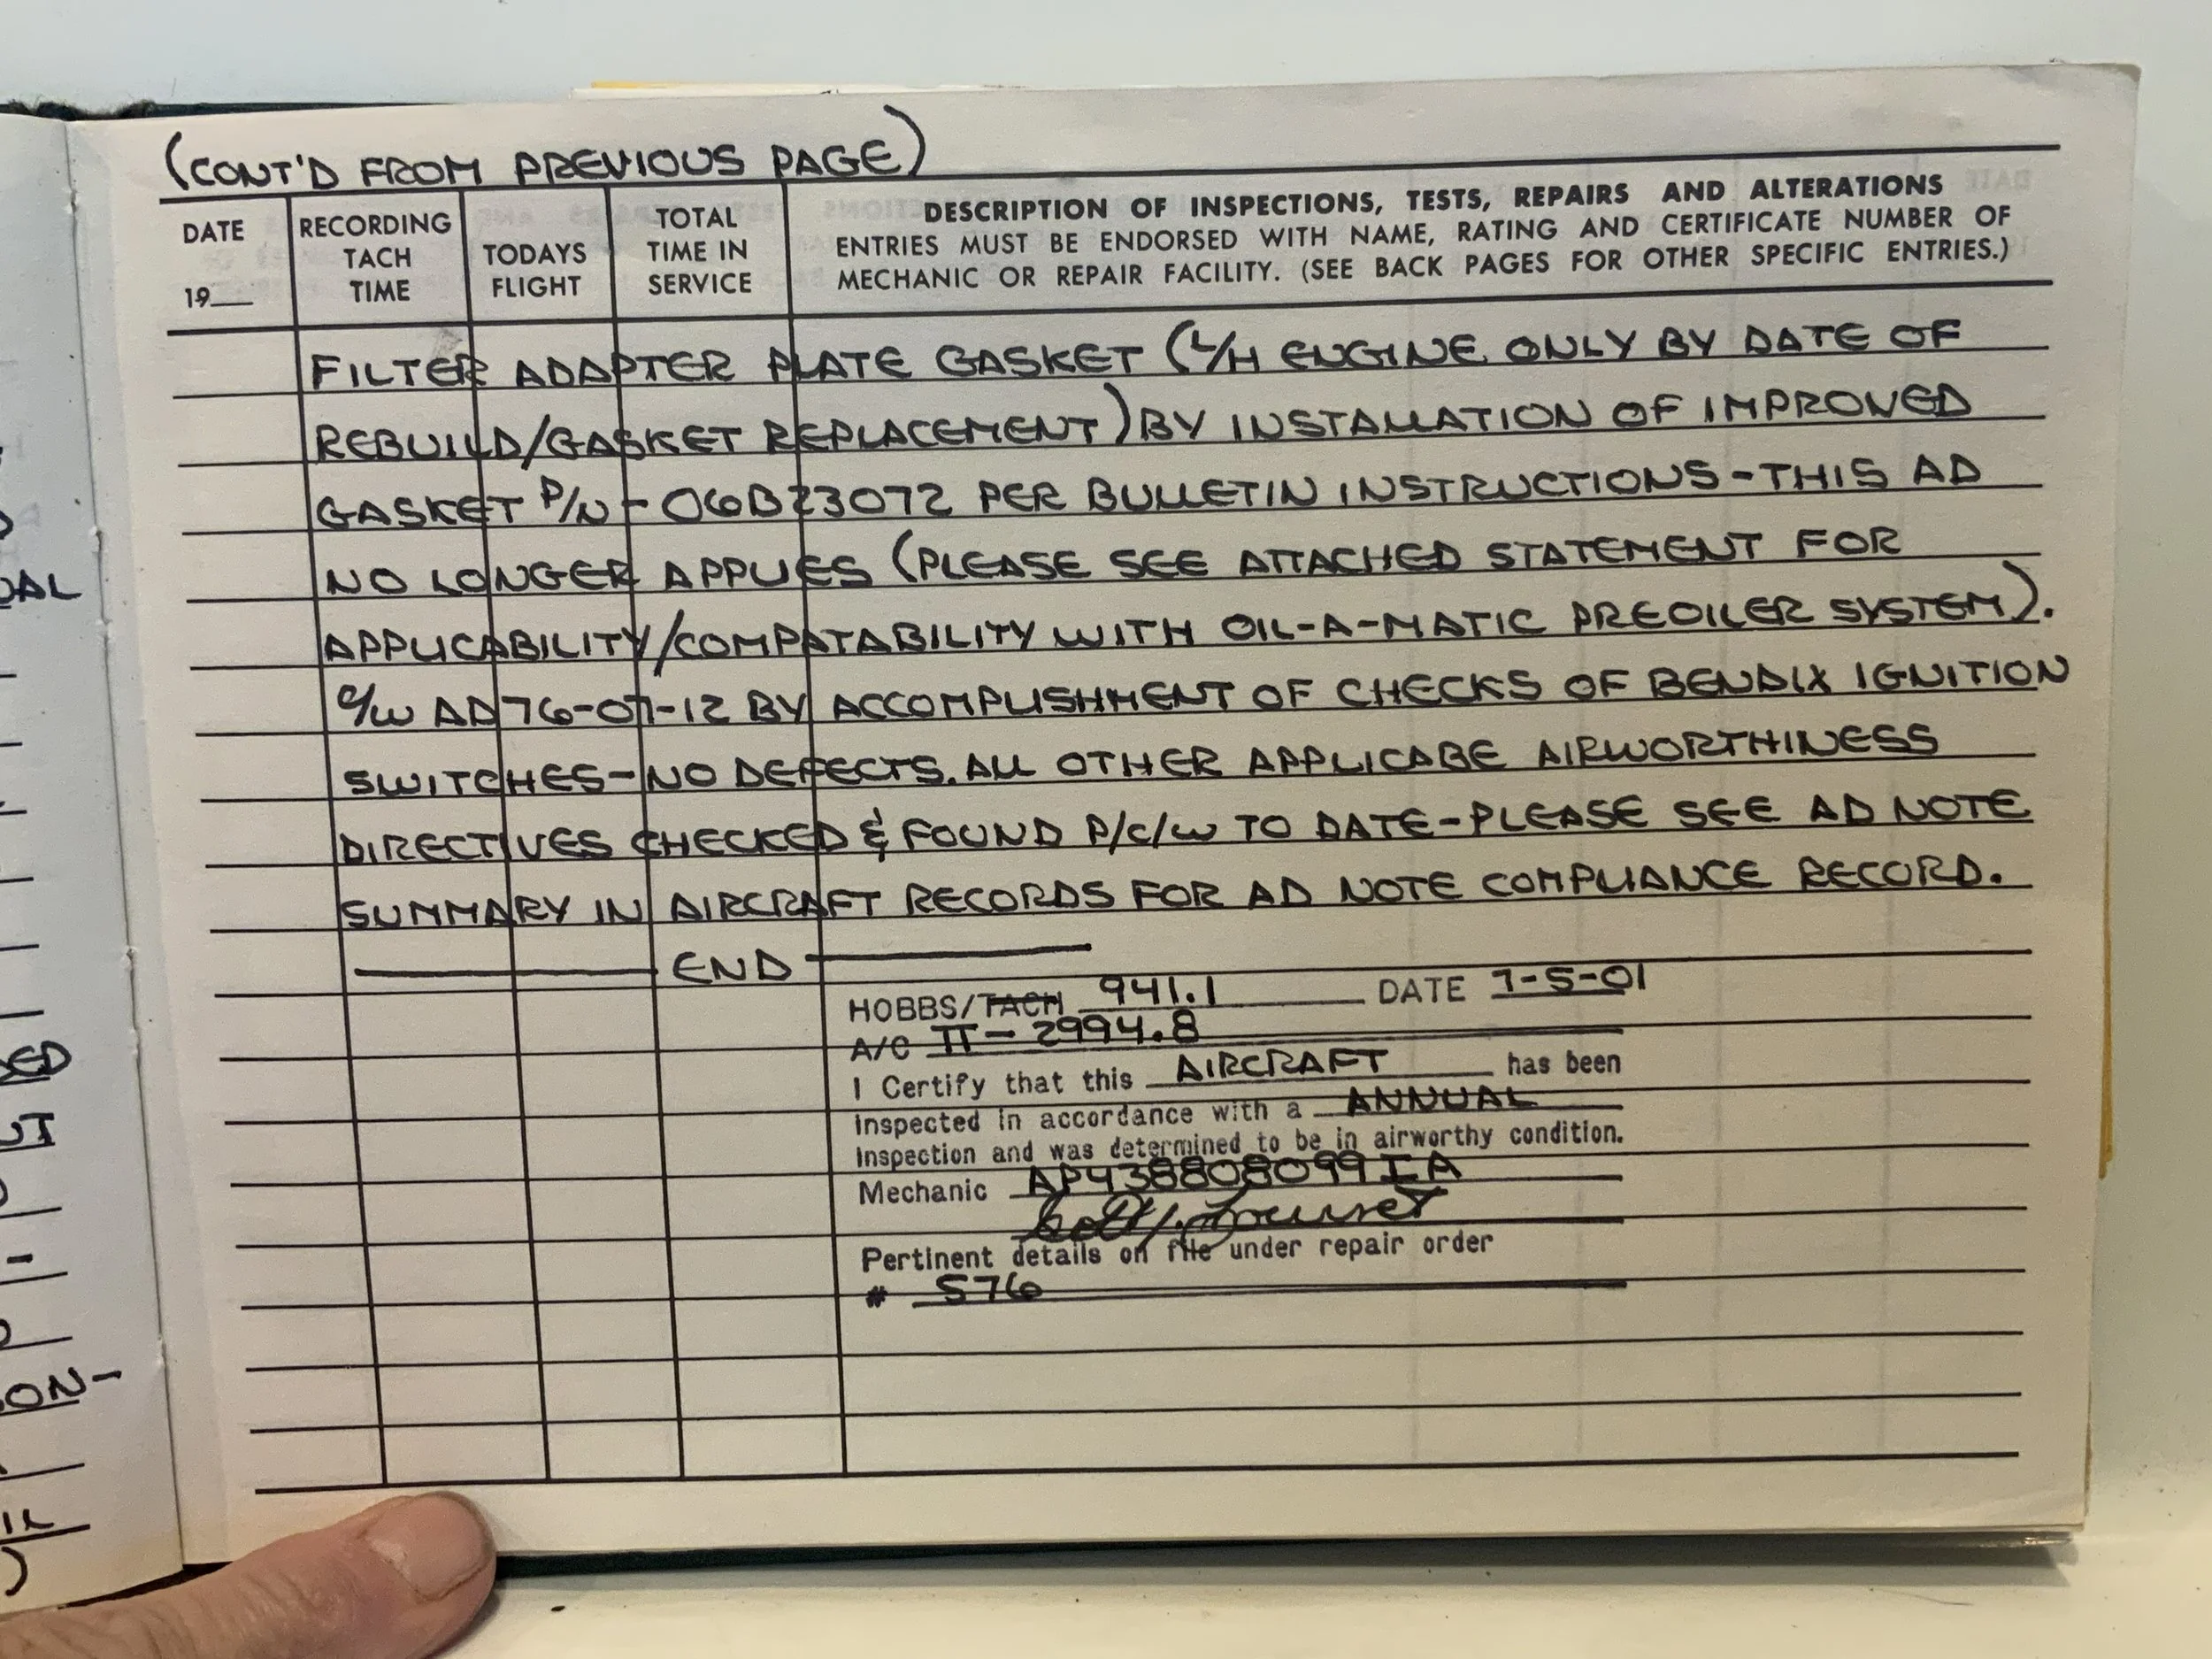 (CONT'D FROM PREVIOUS PAGE)
DATE
19__
RECORDING
TACH
TIME
TODAYS
FLIGHT
TOTAL
TIME IN
SERVICE
DESCRIPTION OF INSPECTIONS, TESTS, REPAIRS AND ALTERATIONS
ENTRIES MUST BE ENDORSED WITH NAME, RATING AND CERTIFICATE NUMBER OF
MECHANIC OR REPAIR FACILITY. (SEE BACK PAGES FOR OTHER SPECIFIC ENTRIES.)
FILTER ADAPTER PLATE GASKET (L/H ENGINE ONLY BY DATE OF
REBUILD/GASKET REPLACEMENT) BY INSTALLATION OF IMPROVED
GASKET P/N - 06B23072 PER BULLETIN INSTRUCTIONS - THIS AD
NO LONGER APPLIES (PLEASE SEE ATTACHED STATEMENT FOR
APPLICABILITY/COMPATABILITY WITH OIL-A-MATIC PREOILER SYSTEM).
C/W AD 76-07-12 BY ACCOMPLISHMENT OF CHECKS OF BENDIX IGNITION
SWITCHES - NO DEFECTS. ALL OTHER APPLICABE AIRWORTHINESS
DIRECTIVES CHECKED & FOUND P/C/W TO DATE - PLEASE SEE AD NOTE
SUMMARY IN AIRCRAFT RECORDS FOR AD NOTE COMPLIANCE RECORD.
END
HOBBS/TACH 941.1 DATE 7-5-01
A/C TT - 2994.8
I Certify that this AIRCRAFT has been
Inspected in accordance with a ANNUAL
Inspection and was determined to be in airworthy condition.
Mechanic AP438808099IA
Pertinent details on file under repair order
# 576
DAL
ED
ON-